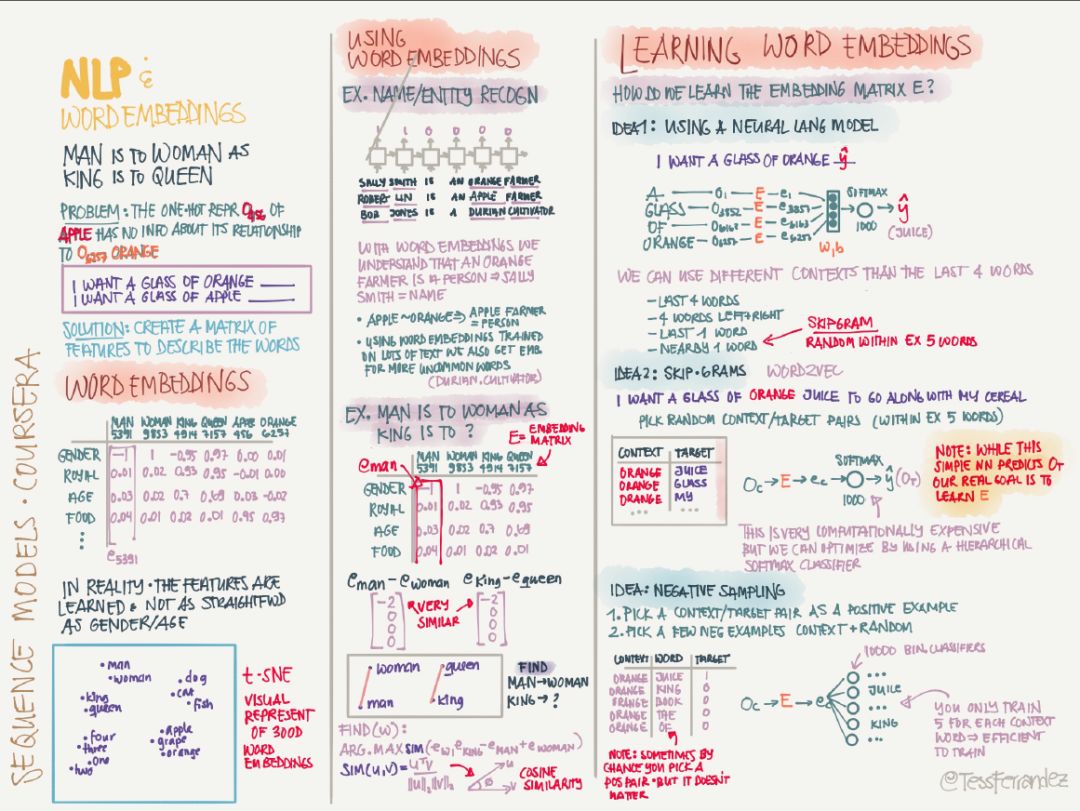 SEQUENCE MODELS · COURSERA
NLP &
WORD EMBEDDINGS
MAN IS TO WOMAN AS
KING IS TO QUEEN
PROBLEM: THE ONE-HOT REPR O456 OF
APPLE HAS NO INFO ABOUT ITS RELATIONSHIP
TO O6257 ORANGE
I WANT A GLASS OF ORANGE ____
I WANT A GLASS OF APPLE ____
SOLUTION: CREATE A MATRIX OF
FEATURES TO DESCRIBE THE WORDS
WORD EMBEDDINGS
MAN WOMAN KING QUEEN APPLE ORANGE
5391 9853 4914 7157 456 6257
GENDER -1 1 -0.95 0.97 0.00 0.01
ROYAL 0.01 0.02 0.93 0.95 -0.01 0.00
AGE 0.03 0.02 0.7 0.69 0.03 -0.02
FOOD 0.04 0.01 0.02 0.01 0.95 0.97
e5391
IN REALITY · THE FEATURES ARE
LEARNED & NOT AS STRAIGHTFWD
AS GENDER/AGE
man
woman
dog
cat
fish
king
queen
four
three
one
two
apple
grape
orange
t-SNE
VISUAL
REPRESENT
OF 300D
WORD
EMBEDDINGS
USING
WORD EMBEDDINGS
EX. NAME/ENTITY RECOGN
1 1 0 0 0 0
SALLY SMITH IS AN ORANGE FARMER
ROBERT LIN IS AN APPLE FARMER
BOB JONES IS A DURIAN CULTIVATOR
WITH WORD EMBEDDINGS WE
UNDERSTAND THAT AN ORANGE
FARMER IS A PERSON ⇒ SALLY
SMITH = NAME
• APPLE ~ ORANGE ⇒ APPLE FARMER
= PERSON
• USING WORD EMBEDDINGS TRAINED
ON LOTS OF TEXT WE ALSO GET EMB.
FOR MORE UNCOMMON WORDS
(DURIAN, CULTIVATOR)
EX. MAN IS TO WOMAN AS
KING IS TO ?
E = EMBEDDING
MATRIX
eman
MAN WOMAN KING QUEEN
5391 9853 4914 7157
GENDER -1 1 -0.95 0.97
ROYAL 0.01 0.02 0.93 0.95
AGE 0.03 0.02 0.7 0.69
FOOD 0.04 0.01 0.02 0.01
eman - ewoman eking - equeen
[-2 0 0 0] VERY SIMILAR [-2 0 0 0]
woman
queen
man
king
FIND
MAN → WOMAN
KING → ?
FIND(W):
ARG.MAX SIM(eW, eKING - eMAN + eWOMAN)
SIM(U,V) = UᵀV / ||U||₂||V||₂
u
v
Ø
COSINE
SIMILARITY
LEARNING WORD EMBEDDINGS
HOW DO WE LEARN THE EMBEDDING MATRIX E?
IDEA 1: USING A NEURAL LANG MODEL
I WANT A GLASS OF ORANGE ŷ
A — O1 — E — e1
GLASS — O3852 — E — e3852
OF — O6163 — E — e6163
ORANGE — O6257 — E — e6257
W, b
SOFTMAX
1000
ŷ
(JUICE)
WE CAN USE DIFFERENT CONTEXTS THAN THE LAST 4 WORDS
- LAST 4 WORDS
- 4 WORDS LEFT + RIGHT
- LAST 1 WORD
- NEARBY 1 WORD
SKIPGRAM
RANDOM WITHIN EX 5 WORDS
IDEA 2: SKIP-GRAMS WORD2VEC
I WANT A GLASS OF ORANGE JUICE TO GO ALONG WITH MY CEREAL
PICK RANDOM CONTEXT/TARGET PAIRS (WITHIN EX 5 WORDS)
CONTEXT TARGET
ORANGE JUICE
ORANGE GLASS
ORANGE MY
...
Oc → E → ec → ŷ (OT)
SOFTMAX
1000
NOTE: WHILE THIS
SIMPLE NN PREDICTS OT
OUR REAL GOAL IS TO
LEARN E
THIS IS VERY COMPUTATIONALLY EXPENSIVE
BUT WE CAN OPTIMIZE BY USING A HIERARCHICAL
SOFTMAX CLASSIFIER
IDEA: NEGATIVE SAMPLING
1. PICK A CONTEXT/TARGET PAIR AS A POSITIVE EXAMPLE
2. PICK A FEW NEG EXAMPLES CONTEXT + RANDOM
CONTEXT WORD TARGET
ORANGE JUICE 1
ORANGE KING 0
ORANGE BOOK 0
ORANGE THE 0
ORANGE OF 0
NOTE: SOMETIMES BY
CHANCE YOU PICK A
POS PAIR · BUT IT DOESN'T
MATTER
Oc → E → ec
10000 BIN. CLASSIFIERS
...
JUICE
...
KING
...
YOU ONLY TRAIN
5 FOR EACH CONTEXT
WORD ⇒ EFFICIENT
TO TRAIN
@TessFerrandez